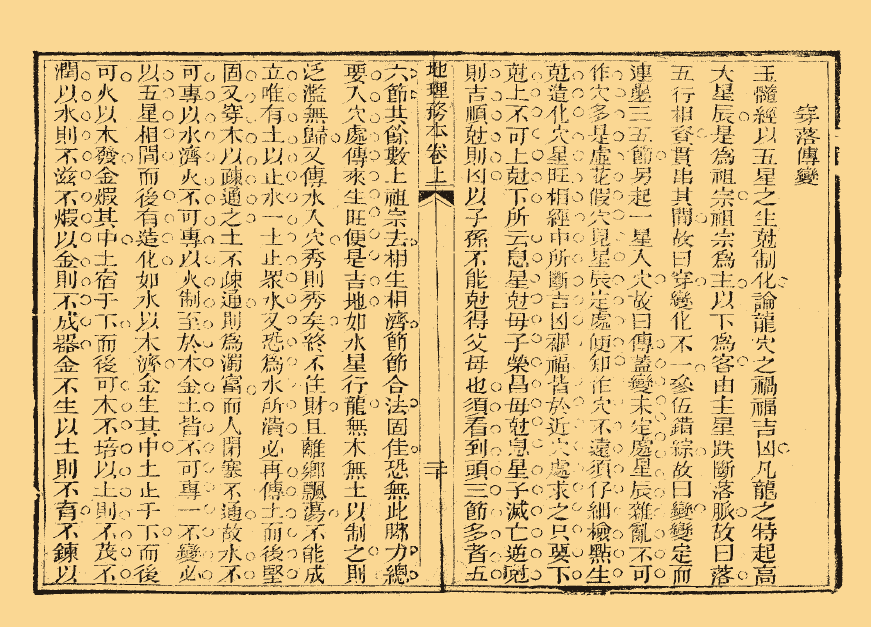 穿落傳變
玉髓經以五星之生尅制化論龍穴之禍福吉凶凡龍之特起高
大星辰是為祖宗祖宗為主以下為客由主星跌斷落脈故曰落
五行相穿貫串其間故曰穿變化不一參伍錯綜故曰變變定而
連變三五節另起一星入穴故曰傳蓋變未定處星辰雜亂不可
作穴多是虛花假穴見星辰定處便知作穴不遠須仔細檢點生
尅造化穴星旺相經中所斷吉凶禍福皆於近穴處求之只要下
尅上不可上尅下所云息星尅母子榮昌母尅息星子滅亡逆尅
則吉順尅則凶以子孫不能尅得父母也須看到頭三節多者五
地理務本卷上
二十
六節其餘數上祖宗去相生相濟節節合法固佳恐無此脚力總
要入穴處傳來生旺便是吉地如水星行龍無木無土以制之則
泛濫無歸又傳水入穴秀則秀矣終不住財且離鄉飄蕩不能成
立唯有土以止水一土止眾水又恐為水所潰必再傳土而後堅
固又穿木以疎通之土不疎通則為濁富而人閉塞不通故水不
可專以水濟火不可專以火制至於木金土皆不可專一不變必
以五星相間而後有造化如水以木濟金生其中土止于下而後
可火以木發金煆其中土宿于下而後可木不培以土則不茂不
潤以水則不滋不煆以金則不成器金不生以土則不育不鍊以